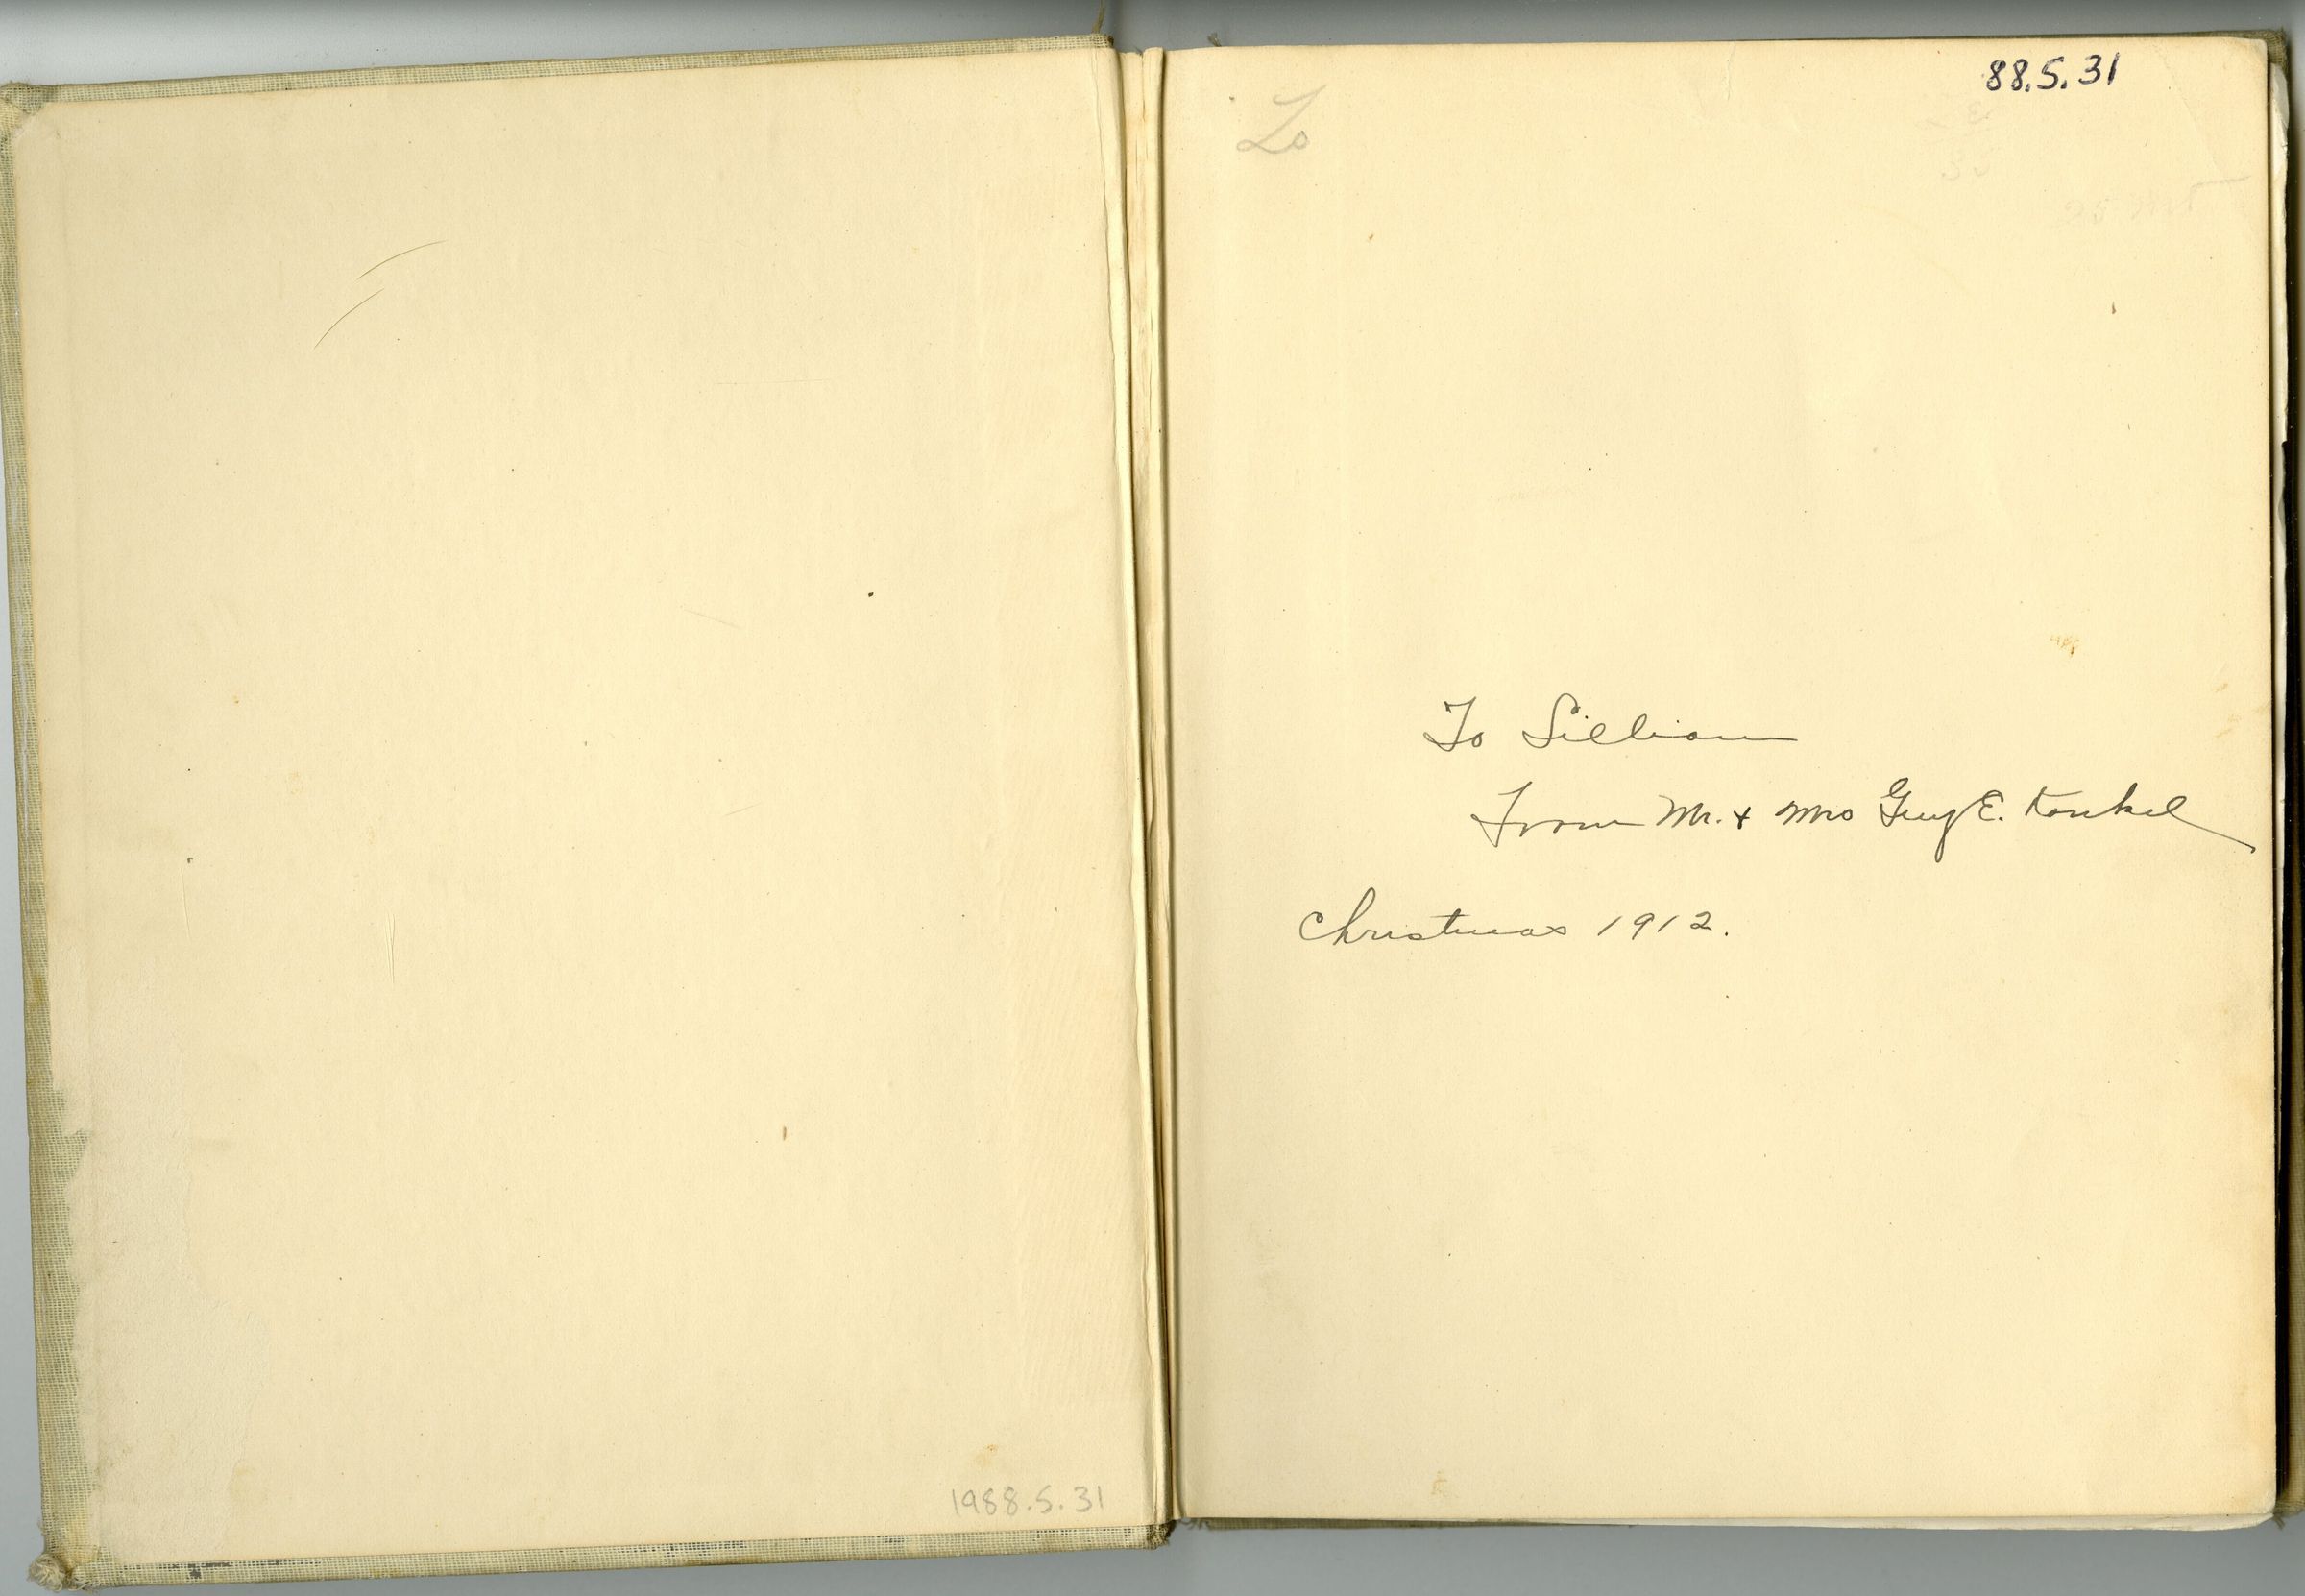 1988.5.31
88.5.31
To
To Lillian
From Mr. + Mrs Guy E. Konkel
Christmas 1912.